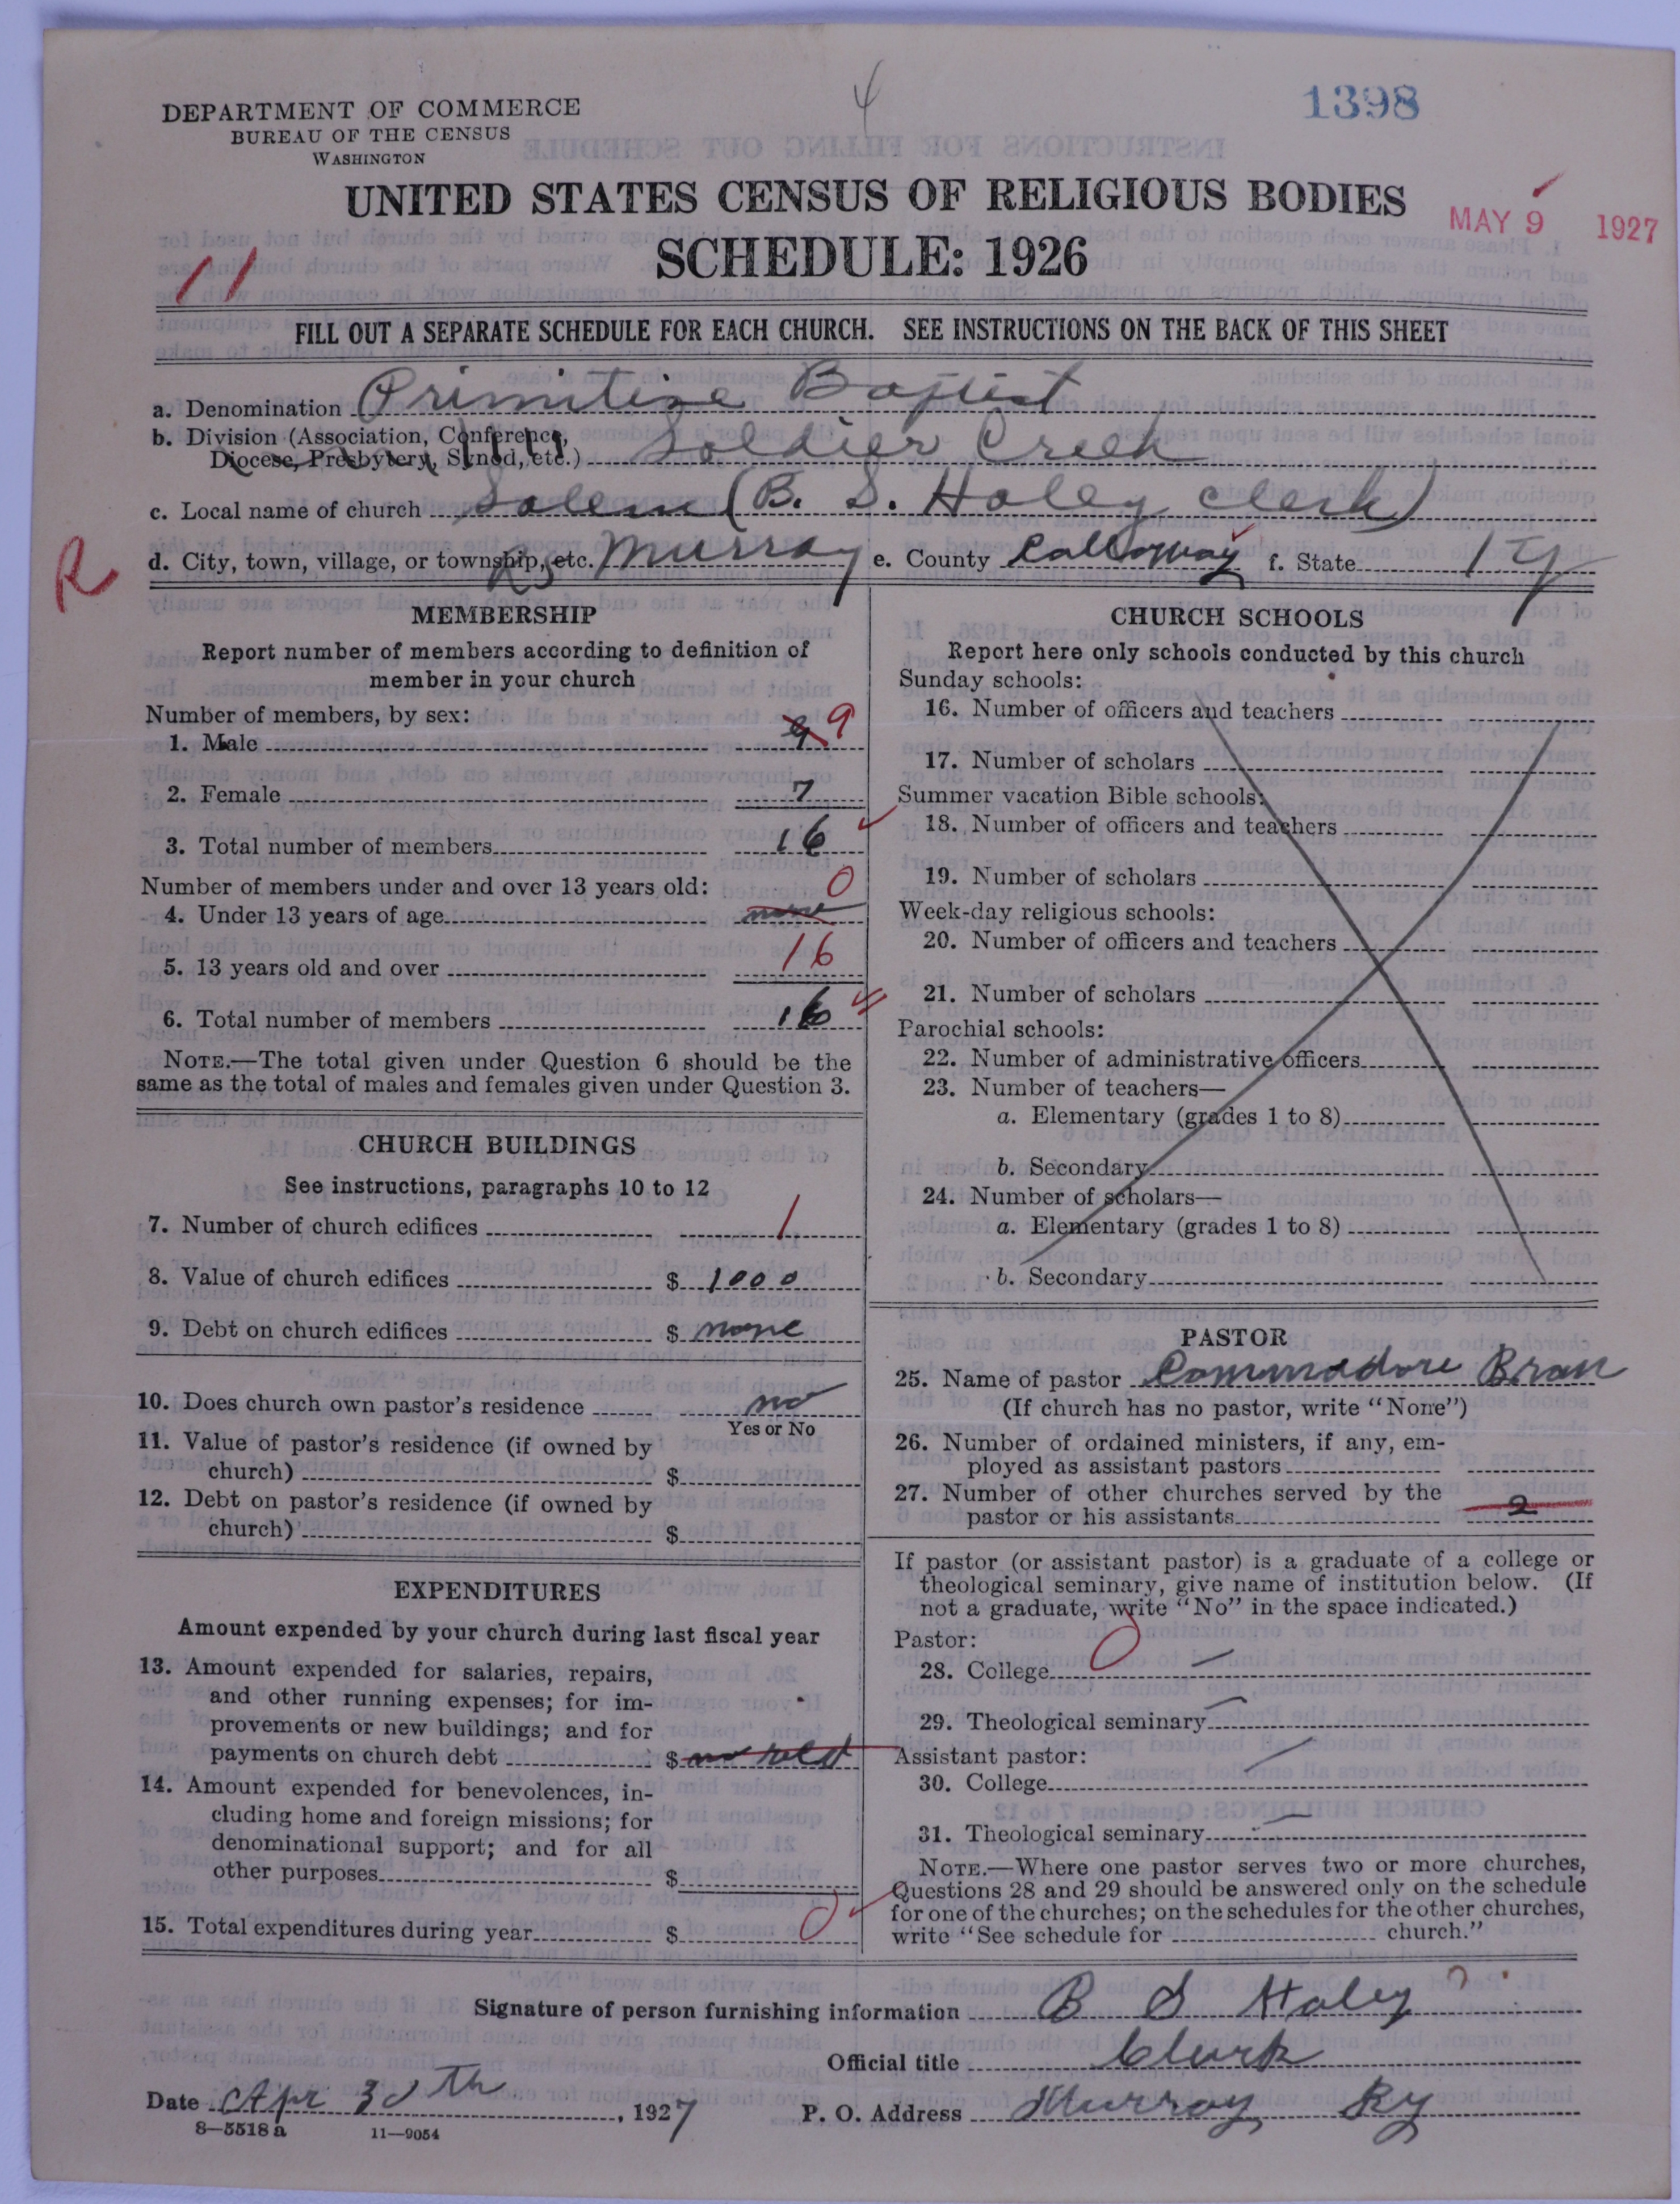 4
1398
DEPARTMENT OF COMMERCE
BUREAU OF THE CENSUS
WASHINGTON
UNITED STATES CENSUS OF RELIGIOUS BODIES
MAY 9 1927
SCHEDULE: 1926
11
FILL OUT A SEPARATE SCHEDULE FOR EACH CHURCH. SEE INSTRUCTIONS ON THE BACK OF THIS SHEET
a. Denomination Primitive Baptist
b. Division (Association, Conference, Diocese, Presbytery, Synod, etc.) Soldier Creek
c. Local name of church Salem (B. S. Haley clerk)
R
d. City, town, village, or township, etc. Murray e. County Calloway f. State Ky
MEMBERSHIP
Report number of members according to definition of
member in your church
Number of members, by sex:
1. Male 9 9
2. Female 7
3. Total number of members 16
Number of members under and over 13 years old:
4. Under 13 years of age none 0
5. 13 years old and over 16
6. Total number of members 16
NOTE.—The total given under Question 6 should be the
same as the total of males and females given under Question 3.
CHURCH BUILDINGS
See instructions, paragraphs 10 to 12
7. Number of church edifices 1
8. Value of church edifices $ 1000
9. Debt on church edifices $ none
10. Does church own pastor's residence no
Yes or No
11. Value of pastor's residence (if owned by
church) $
12. Debt on pastor's residence (if owned by
church) $
EXPENDITURES
Amount expended by your church during last fiscal year
13. Amount expended for salaries, repairs,
and other running expenses; for im-
provements or new buildings; and for
payments on church debt $ no
14. Amount expended for benevolences, in-
cluding home and foreign missions; for
denominational support; and for all
other purposes $
15. Total expenditures during year $ 0
CHURCH SCHOOLS
Report here only schools conducted by this church
Sunday schools:
16. Number of officers and teachers
17. Number of scholars
Summer vacation Bible schools:
18. Number of officers and teachers
19. Number of scholars
Week-day religious schools:
20. Number of officers and teachers
21. Number of scholars
Parochial schools:
22. Number of administrative officers
23. Number of teachers—
a. Elementary (grades 1 to 8)
b. Secondary
24. Number of scholars—
a. Elementary (grades 1 to 8)
b. Secondary
PASTOR
25. Name of pastor Commadore Bran
(If church has no pastor, write "None")
26. Number of ordained ministers, if any, em-
ployed as assistant pastors
27. Number of other churches served by the
pastor or his assistants 2
If pastor (or assistant pastor) is a graduate of a college or
theological seminary, give name of institution below. (If
not a graduate, write "No" in the space indicated.)
Pastor:
28. College 0 —
29. Theological seminary —
Assistant pastor:
30. College —
31. Theological seminary —
NOTE.—Where one pastor serves two or more churches,
Questions 28 and 29 should be answered only on the schedule
for one of the churches; on the schedules for the other churches,
write "See schedule for church."
Signature of person furnishing information B S Haley
Official title Clurk
Date Apr 30th, 1927 P. O. Address Murray Ky
8—5518 a 11—9054